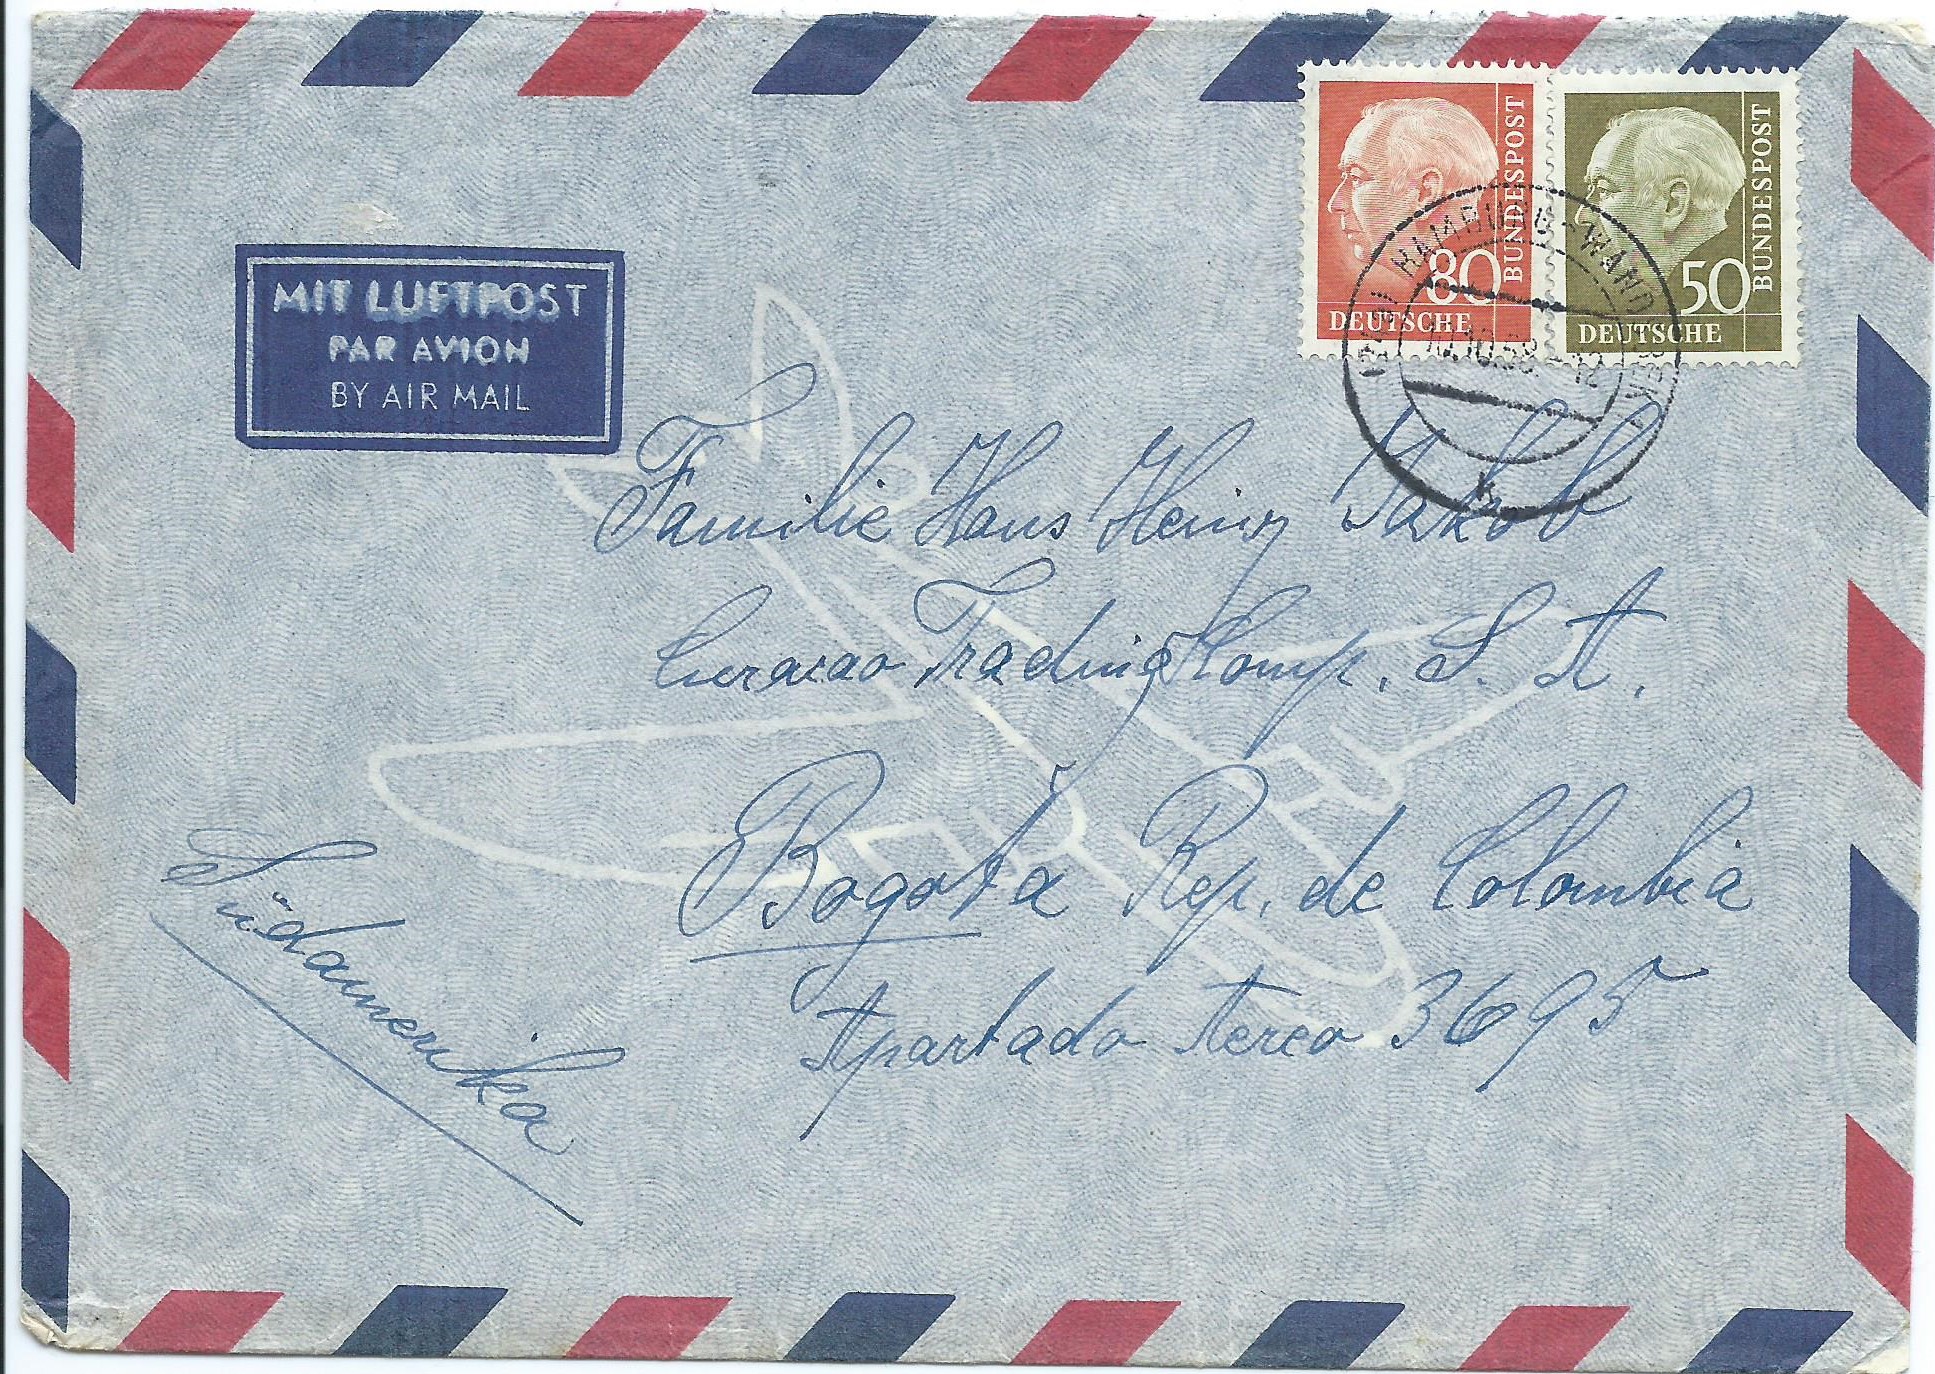 80
DEUTSCHE
BUNDESPOST
50
DEUTSCHE
BUNDESPOST
HAMBURG-WANDSBEK 1
10.10.58.-12
K
MIT LUFTPOST
PAR AVION
BY AIR MAIL
Familie Hans Heinz Jakob
Curacao Trading Comp. S. A.
Bogotá Rep. de Colombia
Apartado Aereo 3695
Südamerika